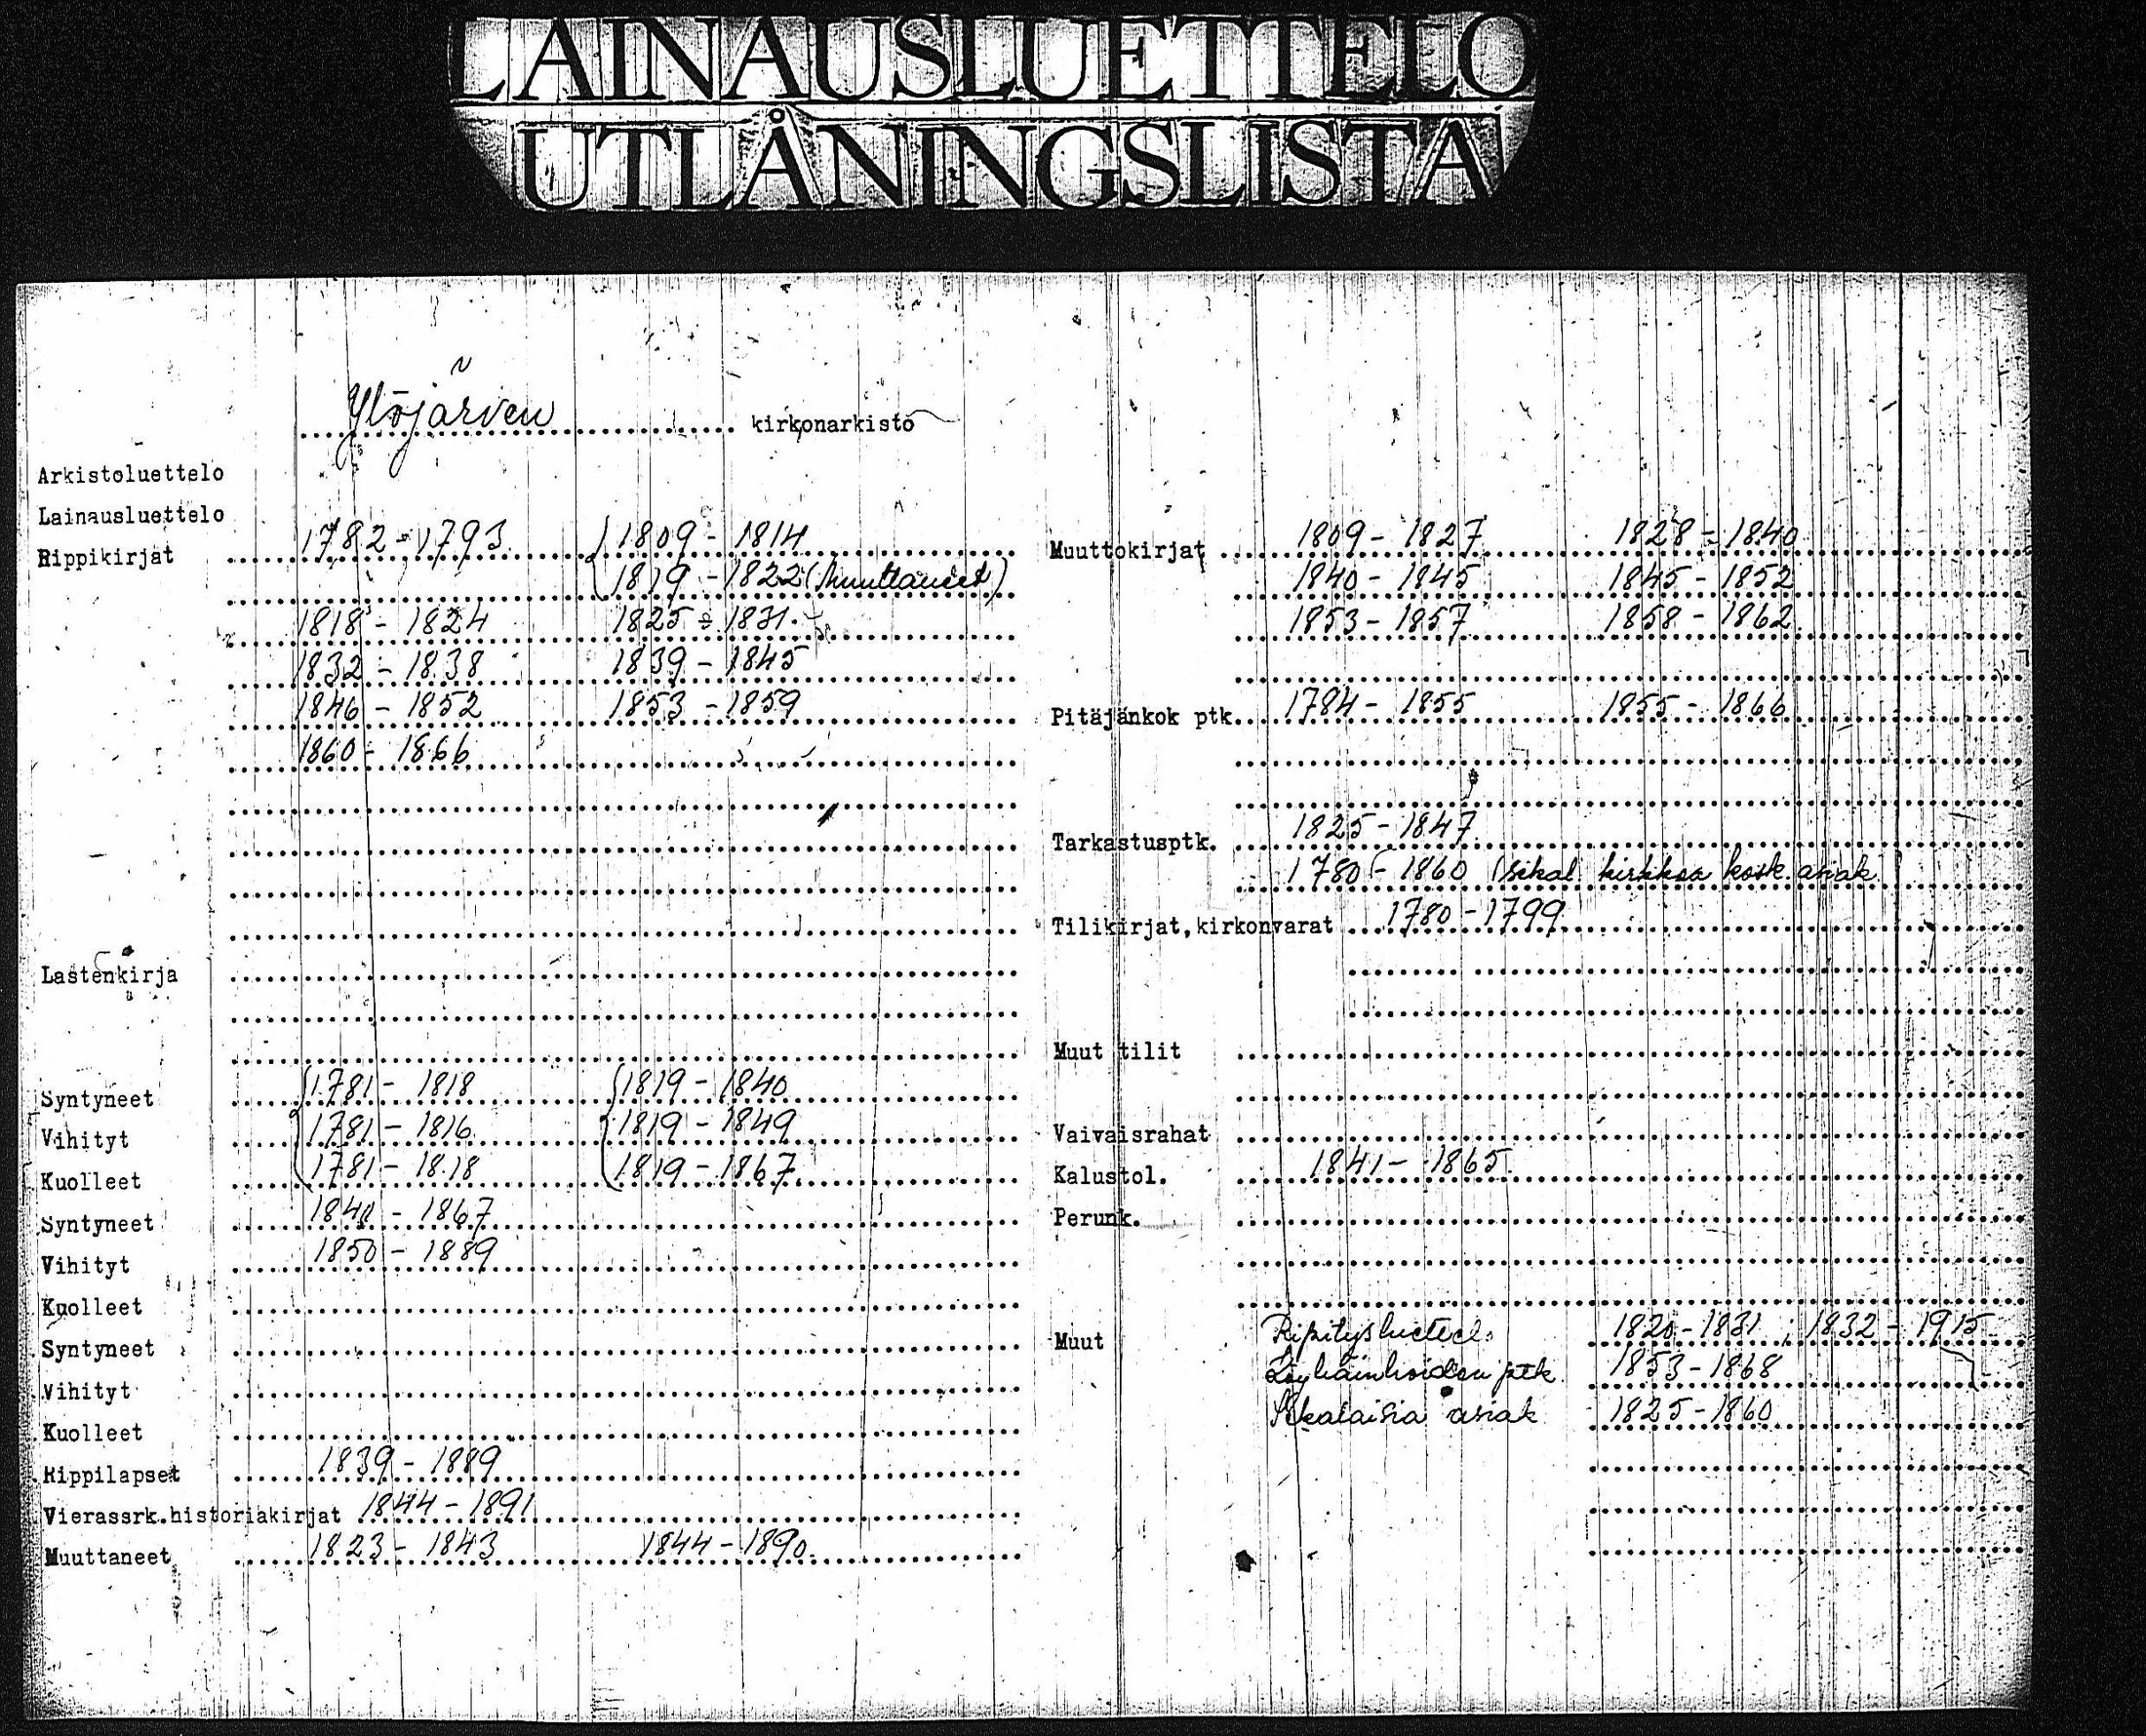 LAINAUSLUETTELO
UTLÅNINGSLISTA
Ylöjärven kirkonarkisto
Arkistoluettelo
Lainausluettelo
Rippikirjat 1782-1793 1809-1814
1819-1822 (Muuttaneet)
1818-1824 1825-1831
1832-1838 1839-1845
1846-1852 1853-1859
1860-1866
Lastenkirja
Syntyneet 1781-1818 1819-1840
Vihityt 1781-1816 1819-1849
Kuolleet 1781-1818 1819-1867
Syntyneet 1840-1867
Vihityt 1850-1889
Kuolleet
Syntyneet
Vihityt
Kuolleet
Rippilapset 1839-1889
Vierassrk.historiakirjat 1844-1891
Muuttaneet 1823-1843 1844-1890
Muuttokirjat 1809-1827 1828-1840
1840-1845 1845-1852
1853-1857 1858-1862
Pitäjänkok ptk. 1784-1855 1855-1866
Tarkastusptk. 1825-1847
1780-1860 (sekal. kirkkoa kosk. asiak.
Tilikirjat,kirkonvarat 1780-1799
Muut tilit
Vaivaisrahat
Kalustol. 1841-1865
Perunk.
Muut Ripitysluettel. 1820-1831; 1832-1915
Köyhäinhoidon ptk. 1853-1868
Sekalaisia asiak. 1825-1860